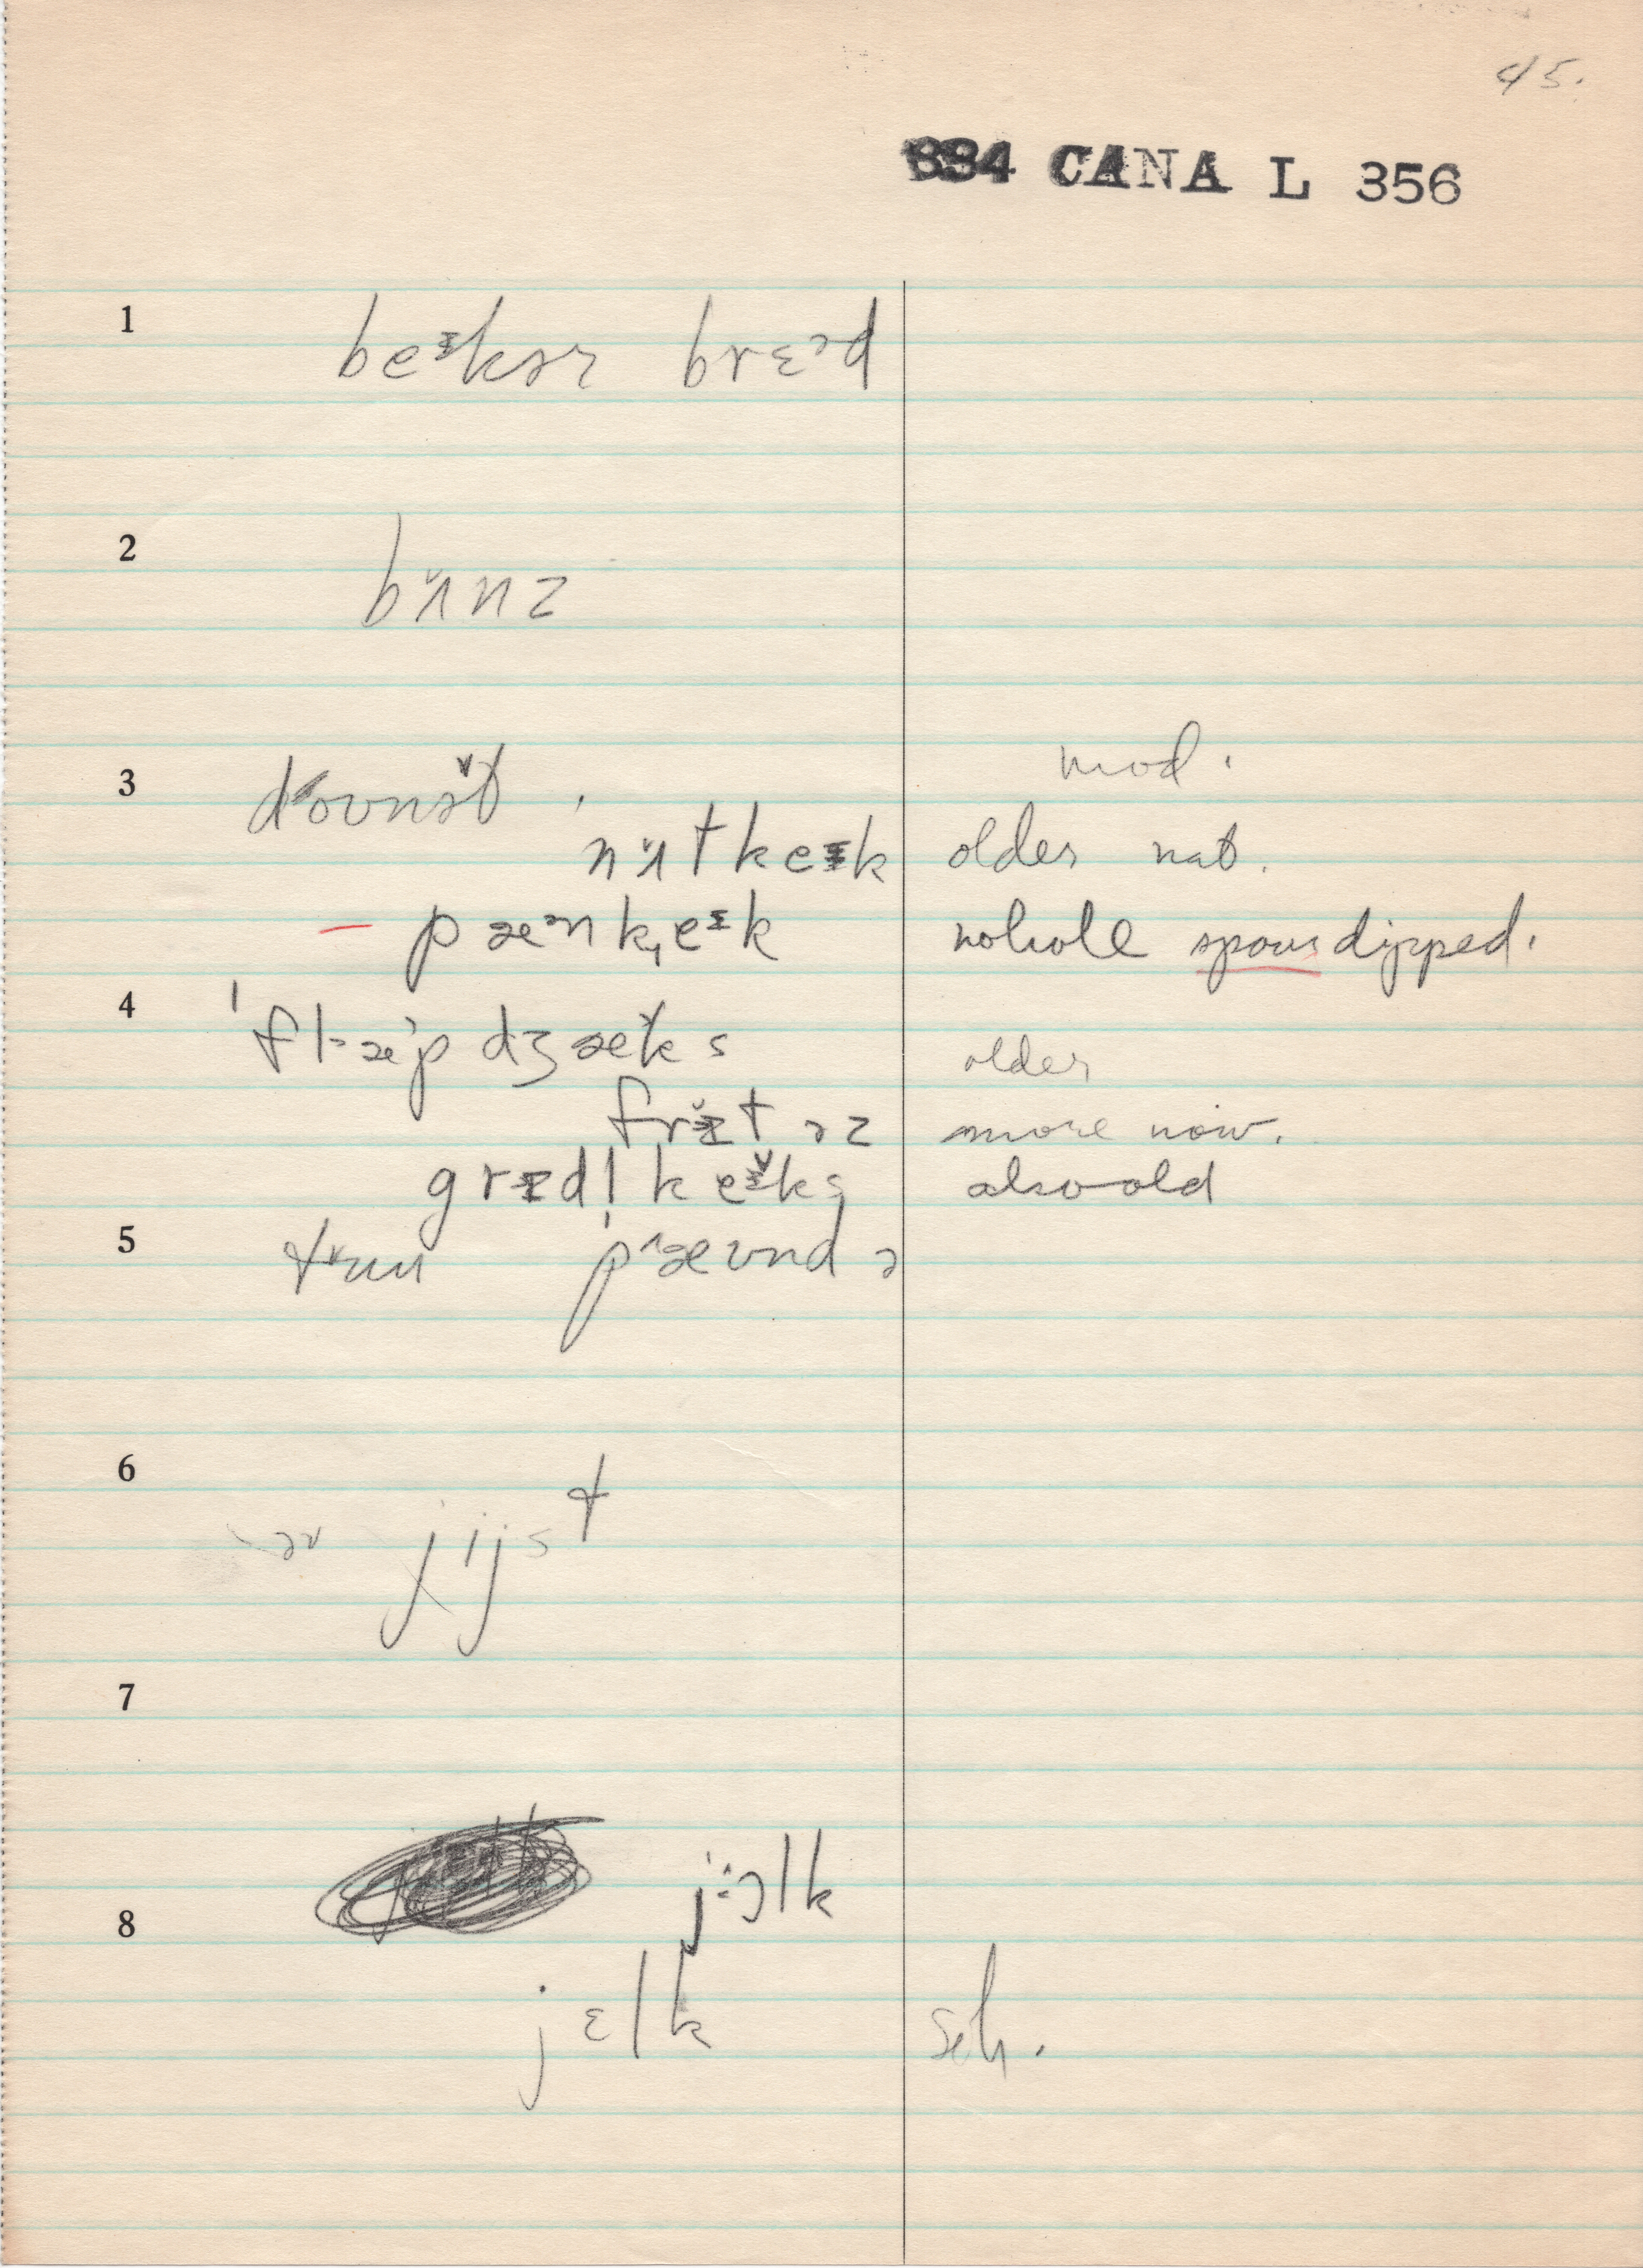 45.
334 CANA L 356
1 beɪkər brɛəd
2 bʌ̆nz
3 dounə̆t . mod.
nʌ̆tkeɪk older nat.
– pæənk,eɪk nohole spour dipped.
4 'flæ'p dʒæk̆s older
frɪ̆təz more now.
grɪdl̩ keɪ̆ks also old
5 pæund ə
6 ər jijst
7
jiəlk
8
jɛlk sch.